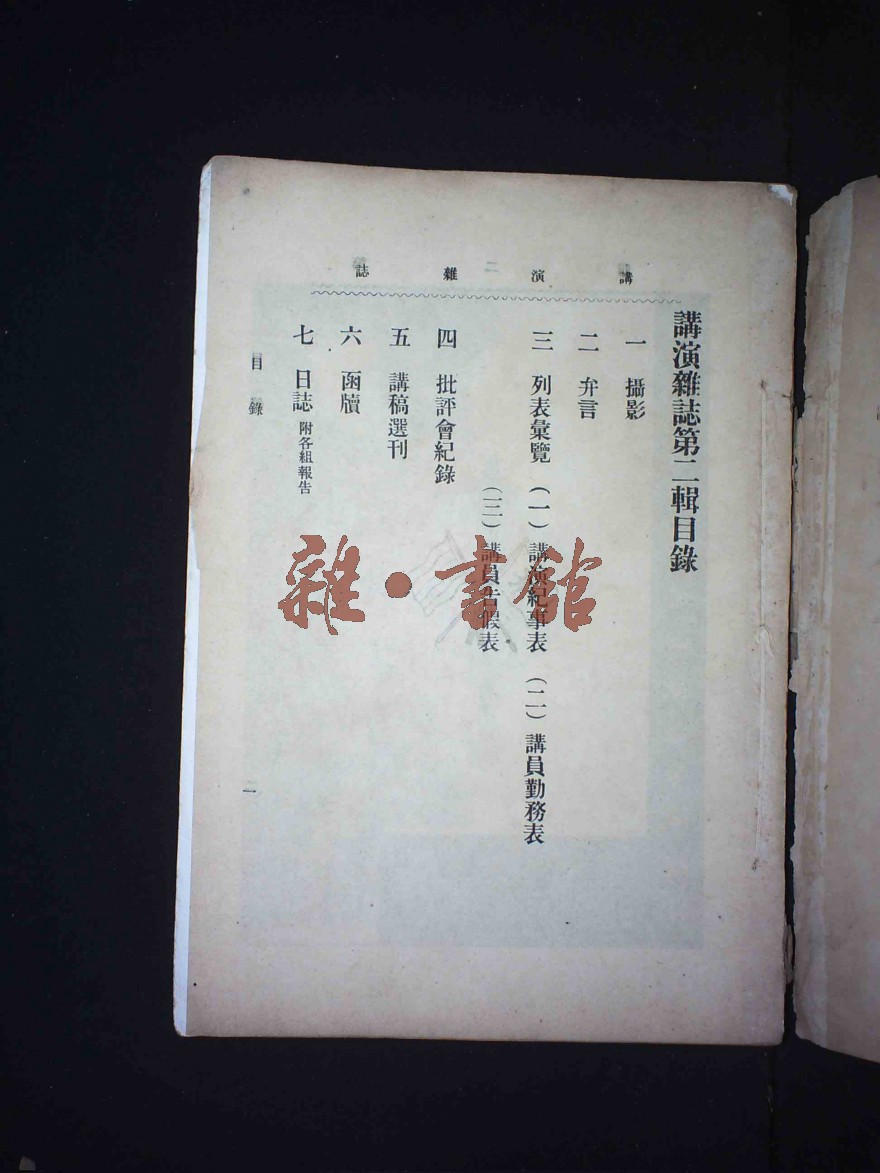 講演雜誌
講演雜誌第二輯目錄
一 攝影
二 弁言
三 列表彙覽 (一) 講演紀事表 (二) 講員勤務表
(三) 講員告假表
四 批評會紀錄
五 講稿選刊
六 函牘
七 日誌 附各組報告
目錄
一
雜·書館